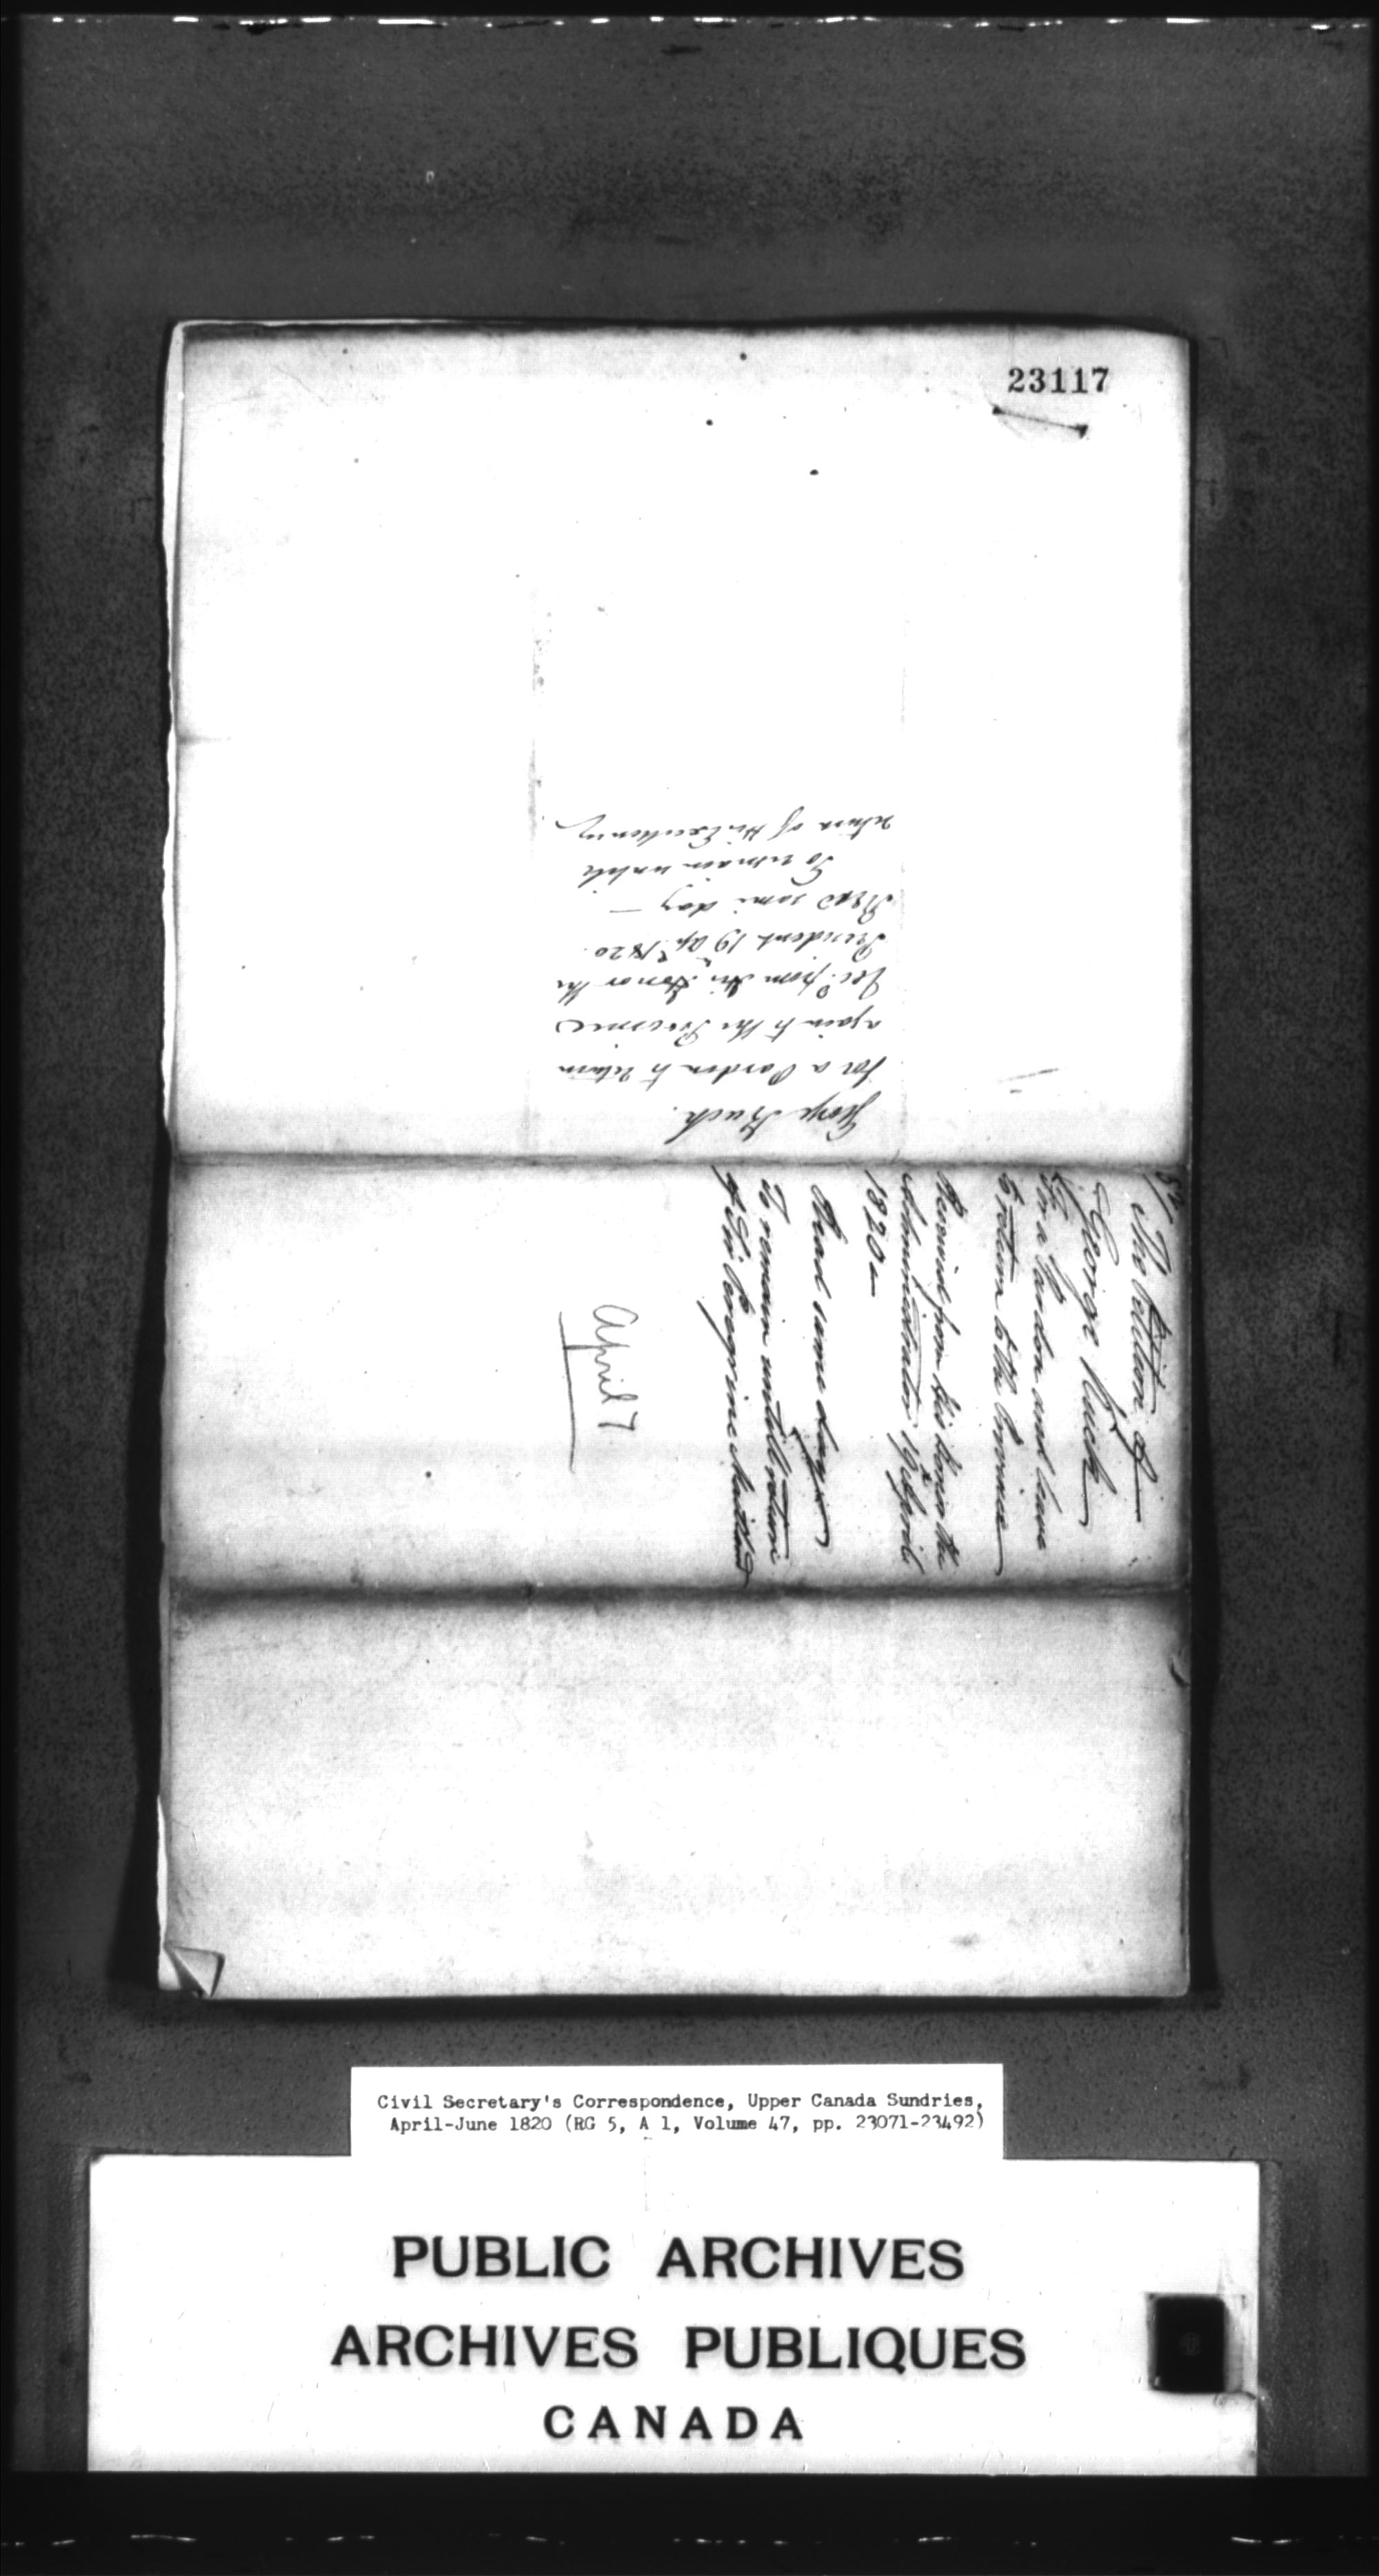 23117
George Ruch.
for a Pardon to return
again to the Province
Rec.d from His Honor the
President 19 Ap.l 1820.
Read same day —
To remain until
return of His Excellency
The Petition of
George Ruch
For a Pardon and leave
to return to the Province
Received from His Honor the
Administrator 19 April
1820 —
Read same day
To remain untill return
of Sir Peregrine Maitland
April 7
Civil Secretary's Correspondence, Upper Canada Sundries,
April-June 1820 (RG 5, A 1, Volume 47, pp. 23071-23492)
PUBLIC ARCHIVES
ARCHIVES PUBLIQUES
CANADA